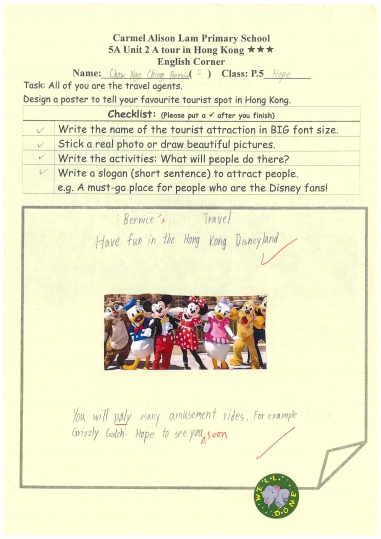 Carmel Alison Lam Primary School
5A Unit 2 A tour in Hong Kong ★★★
English Corner
Name: Chow Ngo Ching ( 5 ) Class: P.5 Hope
Task: All of you are the travel agents.
Design a poster to tell your favourite tourist spot in Hong Kong.
Checklist: (Please put a ✓ after you finish)
✓ Write the name of the tourist attraction in BIG font size.
✓ Stick a real photo or draw beautiful pictures.
✓ Write the activities: What will people do there?
✓ Write a slogan (short sentence) to attract people.
e.g. A must-go place for people who are the Disney fans!
Bernice's Travel
Have fun in the Hong Kong Disneyland
You will paly many amusement rides, For example
Grizzly Gulch. Hope to see you soon
WELL DONE